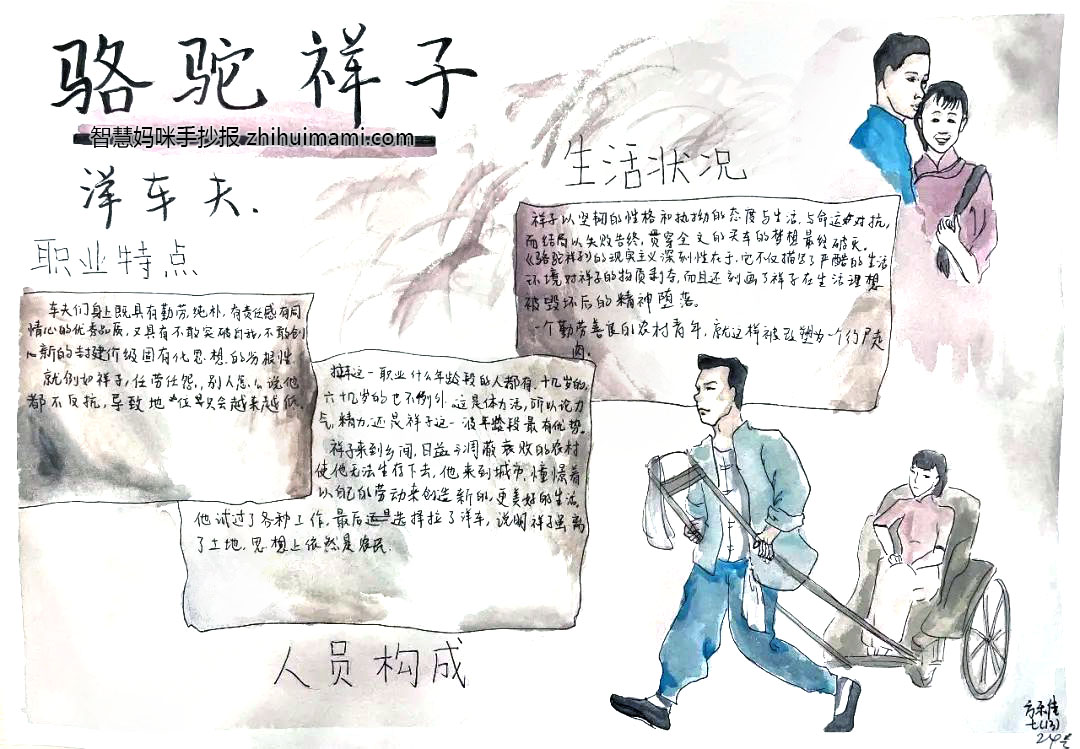 骆驼祥子
智慧妈咪手抄报 zhihuimami.com
洋车夫.
职业特点
车夫们身上既具有勤劳,纯朴,有责任感有同
情心的优秀品质,又具有不敢突破自我,不敢创
新的封建阶级固有化思想的劣根性
就例如祥子,任劳任怨,别人怎么说他
都不反抗,导致地位又会越来越低.
拉车这一职业什么年龄段的人都有,十几岁的,
六十几岁的也不例外.这是体力活,所以论力
气,精力,还是祥子这一波年龄段最有优势.
祥子来到乡间,日益凋蔽衰败的农村
使他无法生存下去,他来到城市,憧憬着
以自己的劳动来创造新的,更美好的生活.
他试过了各种工作,最后还是选择拉了洋车,说明祥子虽离
了土地,思想上依然是农民.
人员构成
生活状况
祥子以坚韧的性格和执拗的态度与生活,与命运对抗,
而结局以失败告终,贯穿全文的买车的梦想最终破灭.
《骆驼祥子》的现实主义深刻性在于,它不仅描写了严酷的生活
环境对祥子的物质剥夺,而且还刻画了祥子在生活理想
被毁坏后的精神堕落.
一个勤劳善良的农村青年,就这样被改塑为一个行尸走
肉.
七(13)
24号